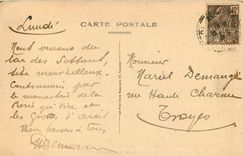 CARTE POSTALE
Lundi
Nous venons du
lac des Settons,
site merveilleux.
Continuons par
le monastère de la
Pierre qui Vire et
les Grottes d'Arcy
Bons baisers à tous,
Monsieur
Marcel
rue Haute Charme
Troyes